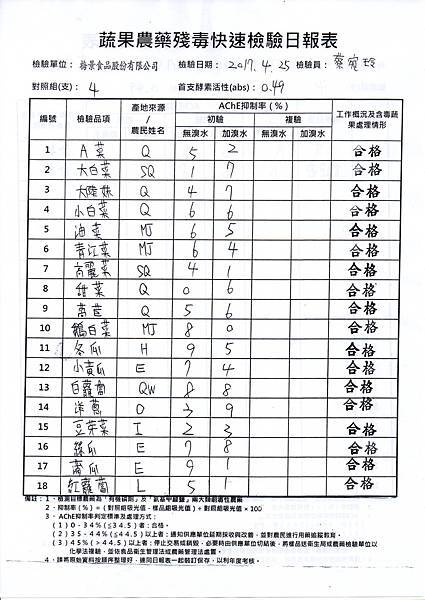 蔬果農藥殘毒快速檢驗日報表
檢驗單位： 裕景食品股份有限公司 檢驗日期：2017.4.25 檢驗員：蔡宛玲
對照組(支)：4 首支酵素活性(abs)：0.49
編號 檢驗品項 產地來源/農民姓名 AChE抑制率(%) 工作概況及含毒蔬果處理情形
初驗 複驗
無溴水 加溴水 無溴水 加溴水
1 A菜 Q 5 2 合格
2 大白菜 SQ 1 7 合格
3 大陸妹 Q 4 7 合格
4 小白菜 Q 6 6 合格
5 油菜 MJ 6 5 合格
6 青江菜 MJ 6 4 合格
7 高麗菜 SQ 4 1 合格
8 甜菜 Q 0 6 合格
9 萵苣 Q 5 6 合格
10 鵝白菜 MJ 8 0 合格
11 冬瓜 H 9 5 合格
12 小黃瓜 E 7 4 合格
13 白蘿蔔 QW 8 8 合格
14 洋蔥 O 3 9 合格
15 豆芽菜 I 2 3 合格
16 絲瓜 E 7 8 合格
17 蒲瓜 E 9 1 合格
18 紅蘿蔔 L 5 1 合格
備註：1．檢測目標農藥為「有機磷劑」及「氨基甲酸鹽」兩大類劇毒性農藥
2．抑制率(%)＝(對照組吸光值－樣品組吸光值)÷對照組吸光值×100
3．AChE抑制率判定標準及處理方式：
(1)0－34%(≦34.5)者：合格。
(2)35－44%(≦44.5)以上者：通知供應單位延期採收與改善，並對農民進行用藥追蹤教育。
(3)45%(＞44.5)以上者：停止交易或銷毀，必要時由供應單位切結後，將樣品送衛生局或農藥檢驗單位以
化學法複驗，並依食品衛生管理法或農藥管理法處置。
4．請將原始資料按順序整理好，連同日報表一起裝訂保存，以利年度考核。